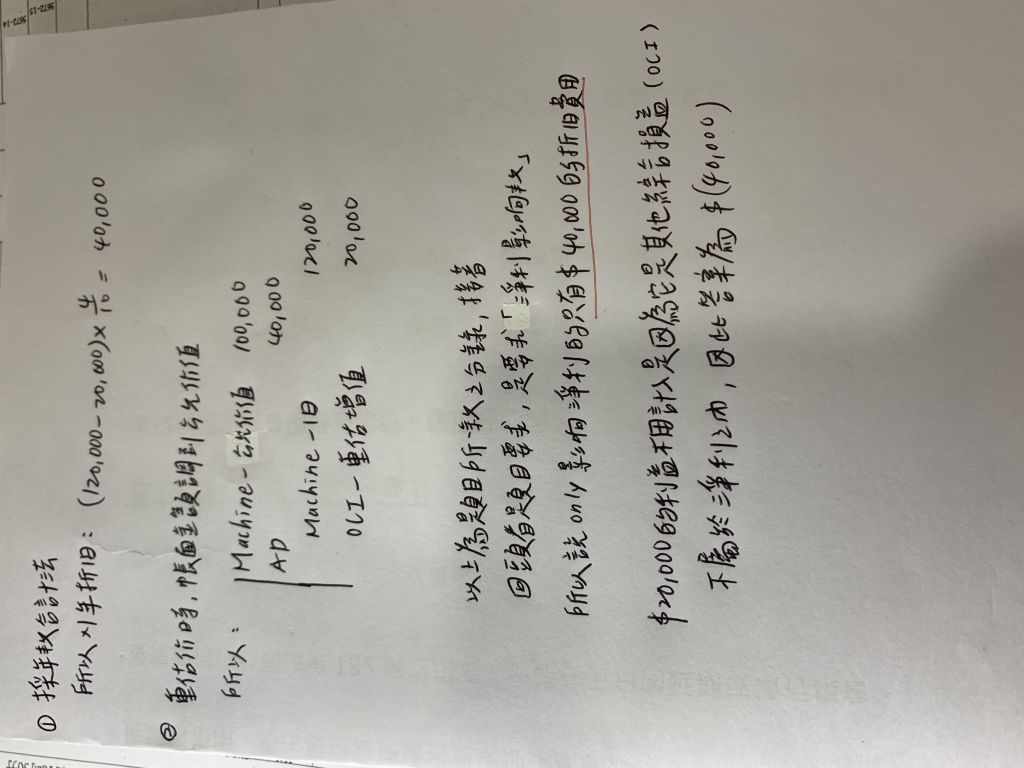 ① 採年數合計法
所以X1年折旧：(120,000－20,000)× 4/10 = 40,000
② 重估價時，帳面金額調到公允價值
所以：Machine－公允價值 100,000
AD 40,000
Machine－旧 120,000
OCI－重估增值 20,000
以上為題目所敘之分錄，接著
回頭看題目要求，是要求「淨利影响數」
所以說 only 影响淨利的只有$40,000的折旧費用
$20,000的利益不用計入是因為它是其他綜合損益(OCI)
不屬於淨利之內，因此答案為 $(40,000)
5672-14
5672-15